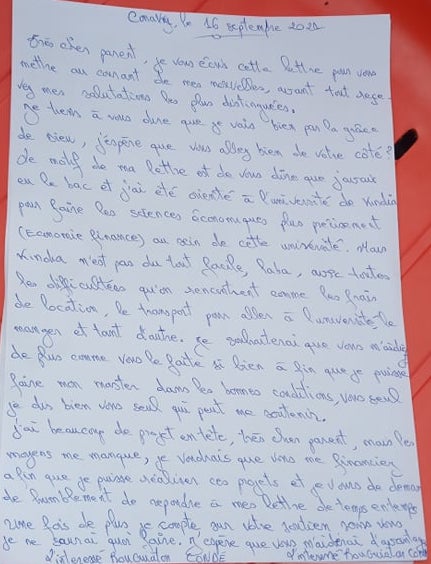 Conakry, le 16 septempre 2021
Très cher parent, je vous écris cette lettre pour vous
mettre au courant de mes nouvelles, avant tout rece-
vez mes salutations les plus distinguées.
Je tiens à vous dire que je vais bien par la grâce
de Dieu, j'espère que vous allez bien de votre côté?
le motif de ma lettre est de vous dire que j'avait
eu le bac et j'ai été orienté à l'université de Kindia
pour faire les sciences économiques plus précisement
(Economie finances) au sein de cette université. Mais
Kindia n'est pas du tout facile, baba, avec toutes
les difficultées qu'on rencontrent comme les frais
de location, le transport pour aller à l'université, le
manger et tant d'autre. Je souhaiterai que vous m'aidiez
de plus comme vous le faite si bien à fin que je puisse
faire mon master dans les bonnes conditions, vous seul
je dis bien vous seul qui peut me soutenir.
J'ai beaucoup de projet entête, très cher parent, mais les
moyens me manque, je voudrais que vous me financiez
afin que je puisse réaliser ces projets et je vous de deman
de humblement de repondre à mes lettre de temps entemps
Une fois de plus je compte sur votre soutien sans vous
je ne saurai quoi faire. J'espère que vous m'aiderai d'avantage
L'interessé Bouguidon CONDE L'interessé Bouguidon Condé